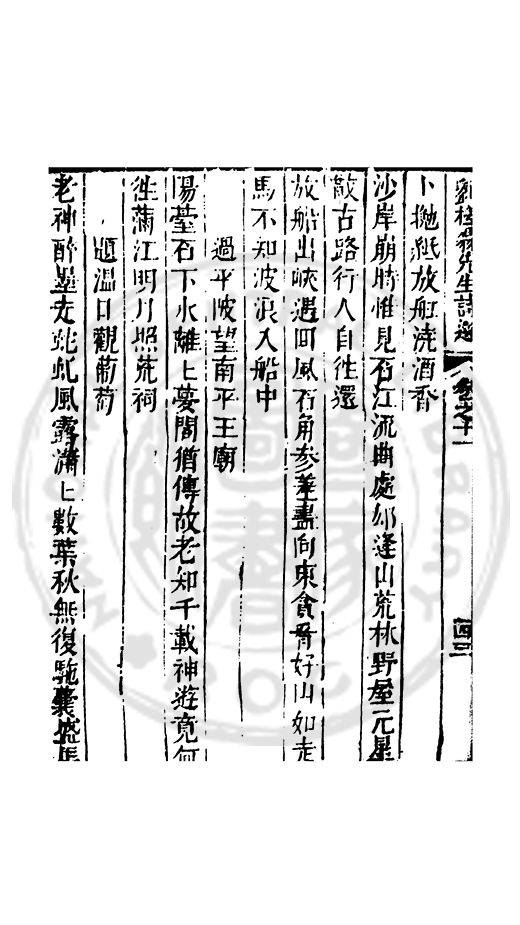 先生詩選 卷之十一
卜拋紙放舡澆酒香
沙岸崩時惟見石江流曲處却逢山荒林野屋元星
散古路行人自往還
放船出峽遇回風石角參差盡向東貪看好山如走
馬不知波浪入船中
過平陂望南平王廟
陽臺石下水離上夢閣猶傳故老知千載神遊竟何
往蒲江明月照荒祠
題溫日觀葡萄
老神醉墨走虬風露滿上數葉秋無復馳囊盛